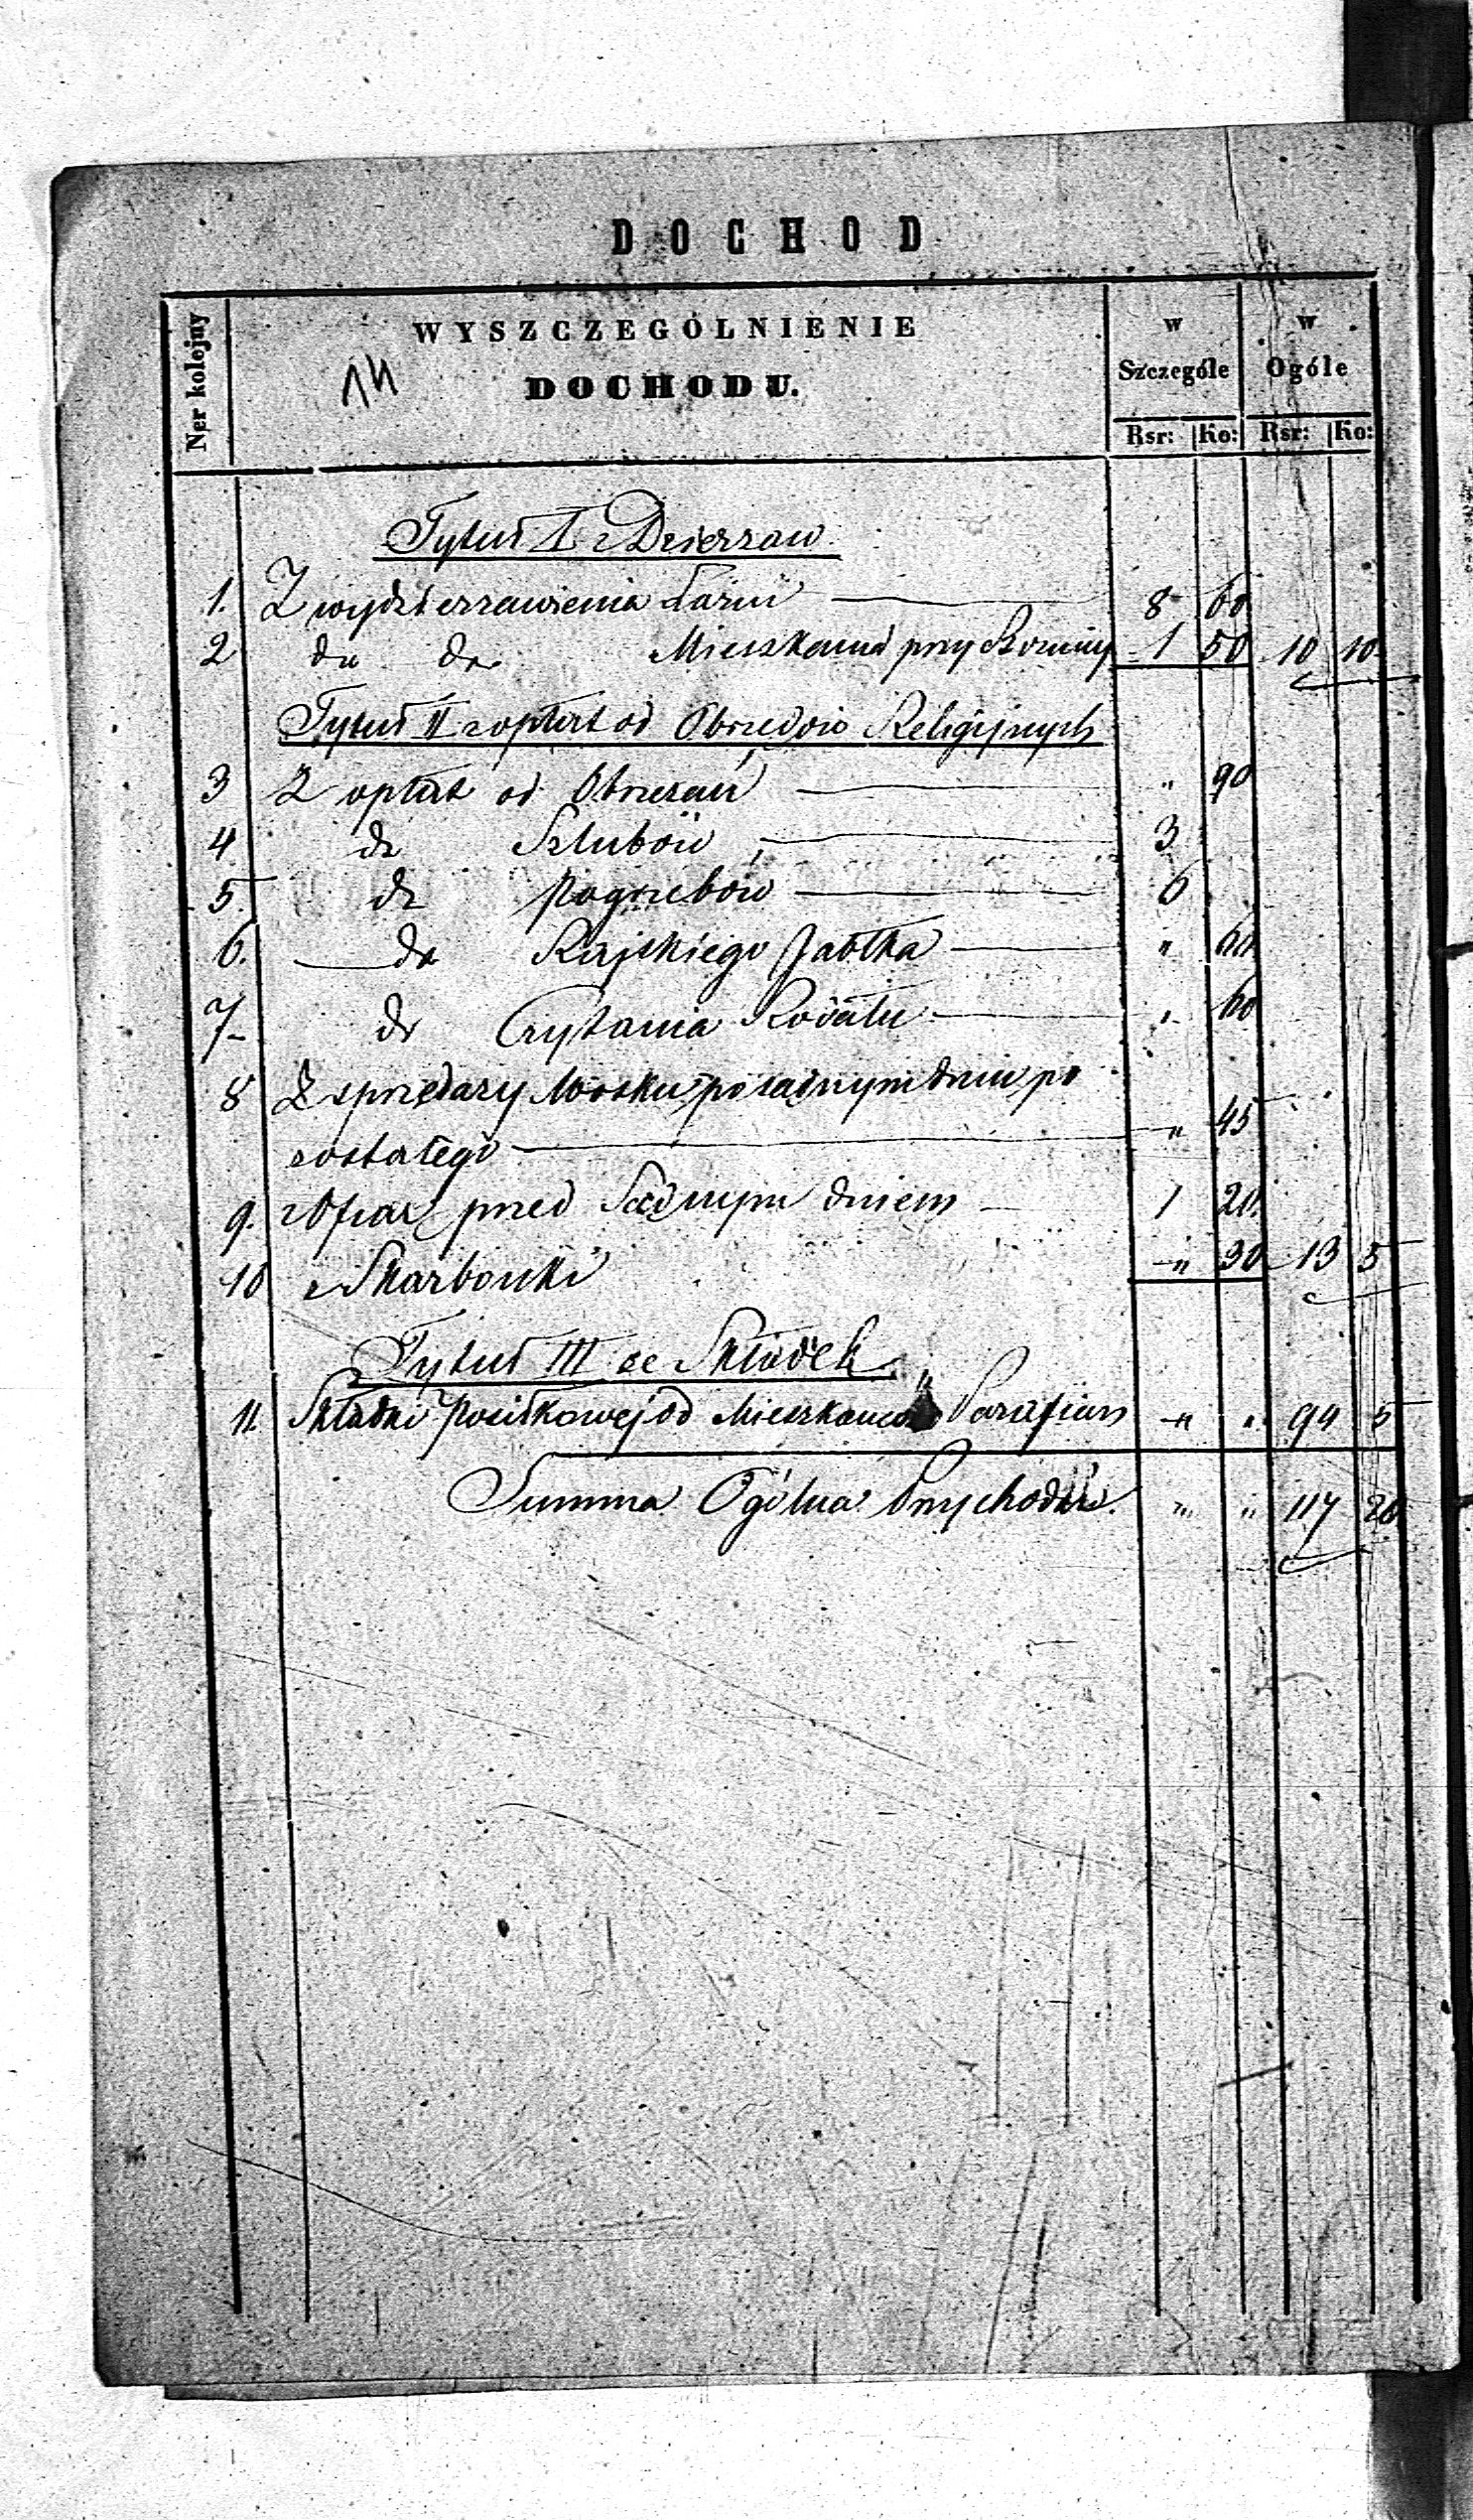 DOCHOD
Ner kolejny
WYSZCZEGÓLNIENIE
DOCHODU.
14
w Szczególe
w Ogóle
Rsr: Ko: Rsr: Ko:
Tytuł I z Dzierzaw
1. Z wydzierzawienia Łazni 8 60
2 do do Mieszkania przy Bożnicy 1 50 10 10
Tytuł II z opłat od Obrzedów Religijnych
3 Z opłat od Obrzezań " 90
4 do Szlubów 3
5. do Pogrzebów 6
6. do Rajskiego Jabłka " 60
7 do Czytania Rodału " 60
8 Z sprzedazy Wosku po sadnym dniu po
zostałego " 45
9. z Ofiar przed Sądnym dniem 1 20
10 z Skarbonki " 30 13 5
Tytuł III ze Składek
11. Składki Posiłkowej od Mieszkanców Parafian " " 94 5
Summa Ogólna Przychodu. " " 117 20